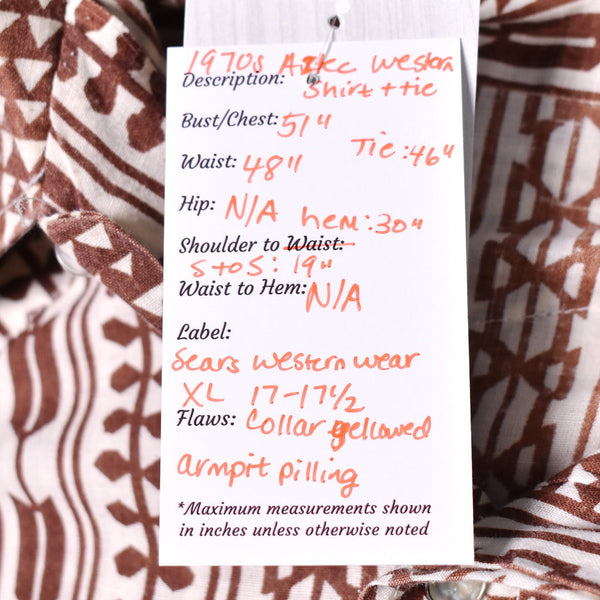 1970s Aztec Western
Description: Shirt + tie
Bust/Chest: 51"
Tie: 46"
Waist: 48"
Hip: N/A hem: 30"
Shoulder to Waist:
S to S: 19"
Waist to Hem: N/A
Label:
Sears western wear
XL 17-17 1/2
Flaws: Collar yellowed
armpit pilling
*Maximum measurements shown
in inches unless otherwise noted